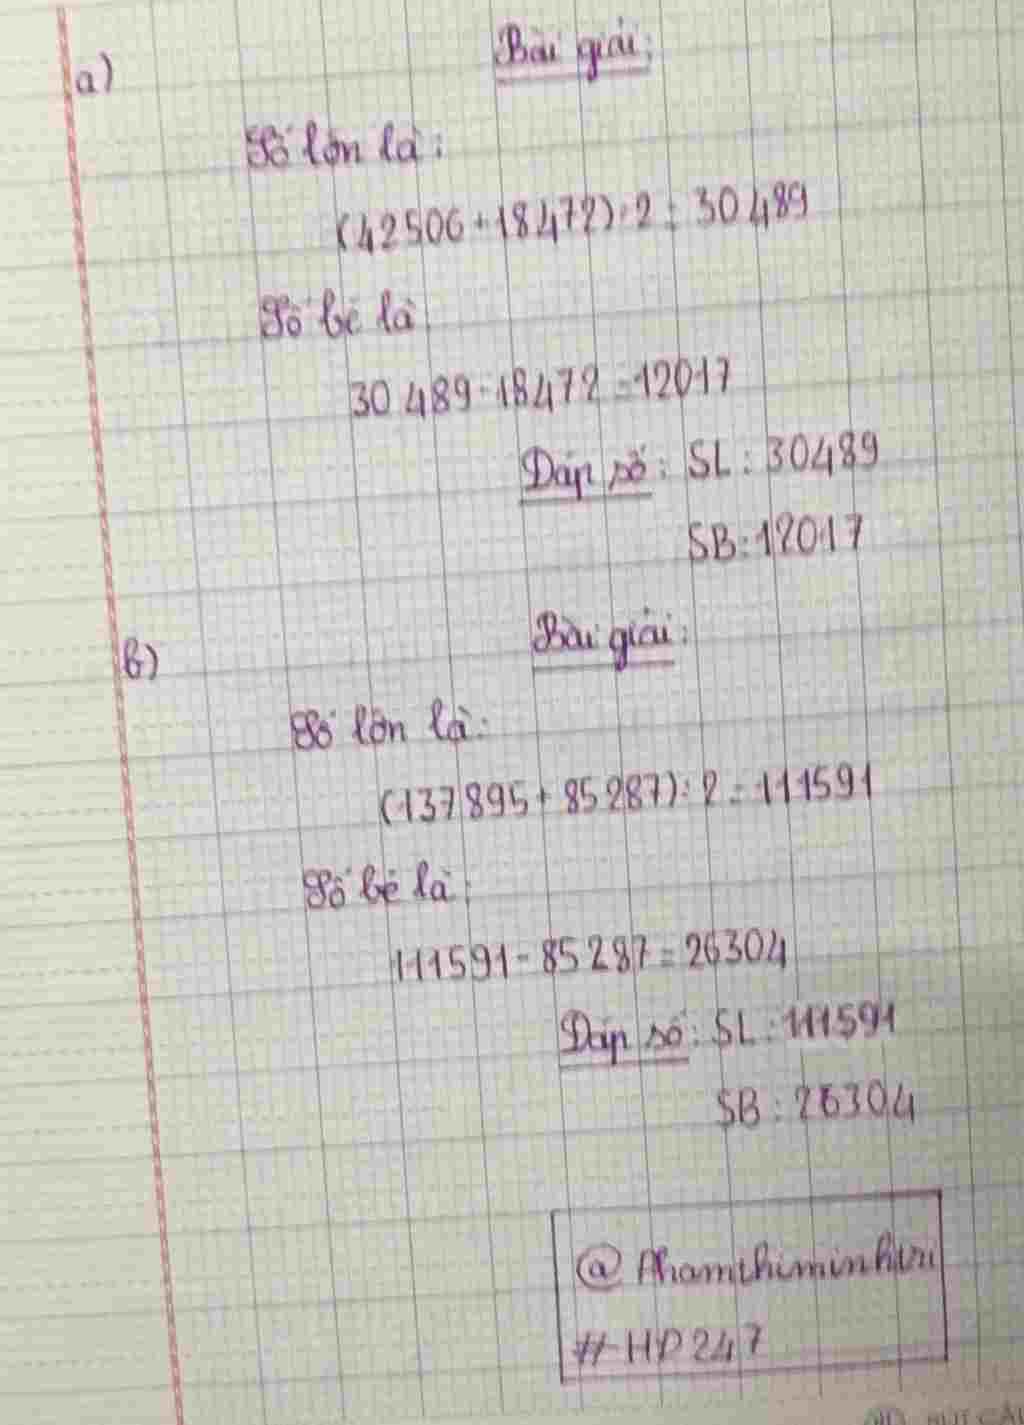 a)
Bài giải:
Số lớn là:
(42506 + 18472) : 2 = 30489
Số bé là
30489 - 18472 = 12017
Đáp số: SL: 30489
SB: 12017
b)
Bài giải:
Số lớn là:
(137895 + 85287) : 2 = 111591
Số bé là:
111591 - 85287 = 26304
Đáp số: SL: 111591
SB: 26304
#HD247